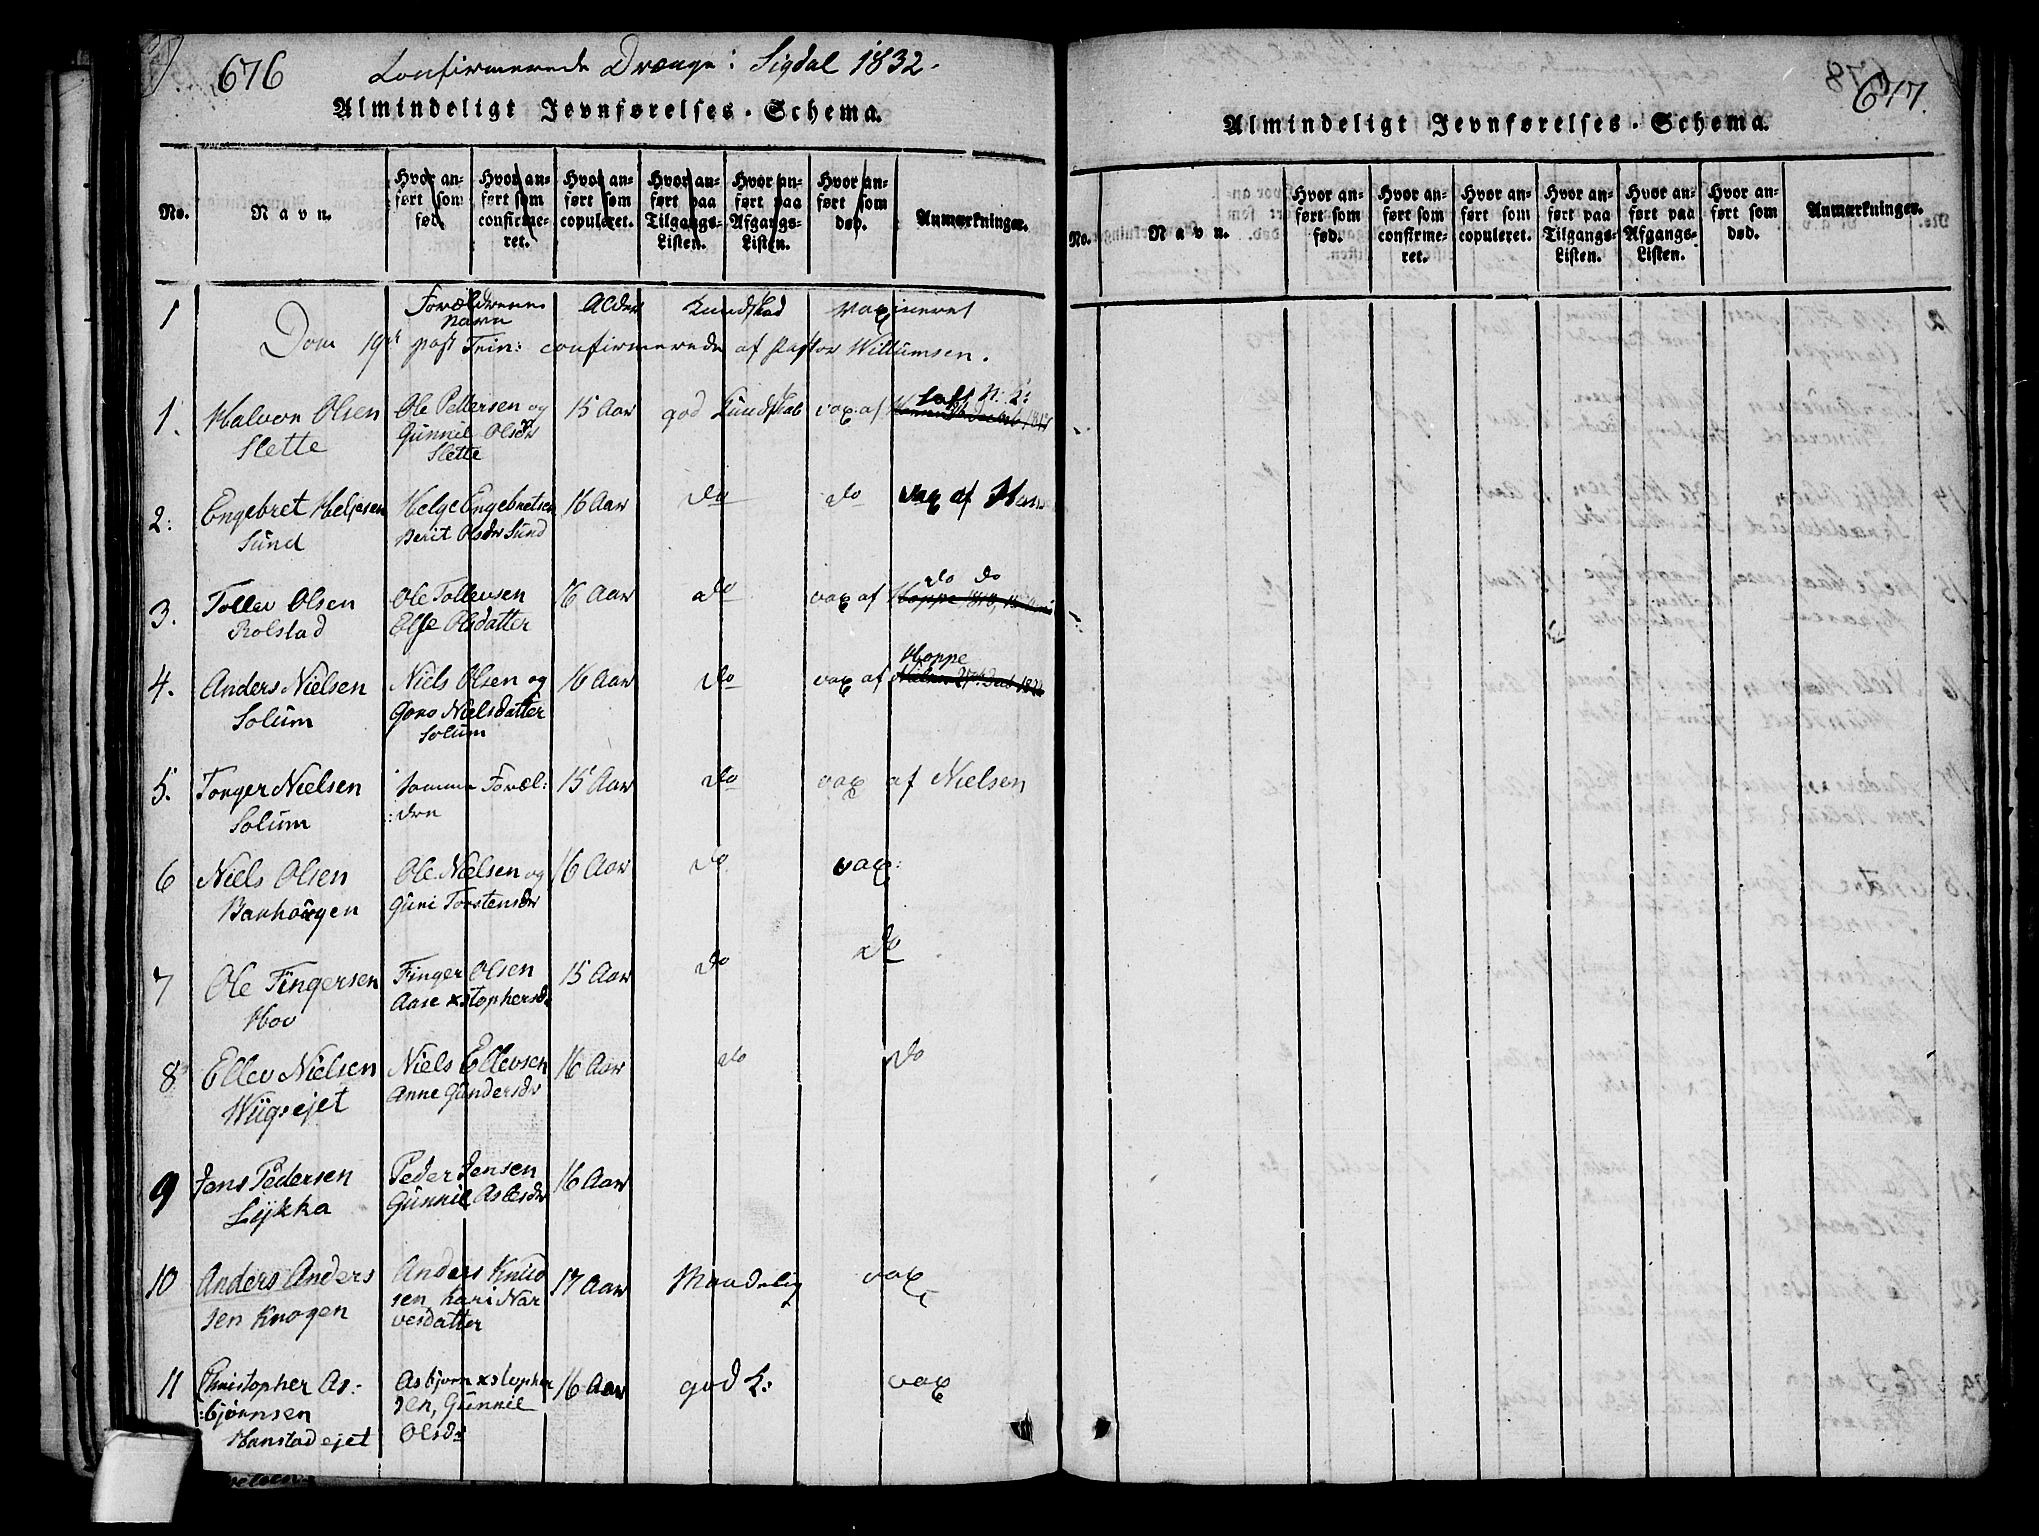 676
Confirmerede Drenge: Sigdal 1832.
Almindeligt Jevnførelses-Schema.
No.
Navn.
Hvor anført som fød.
Hvor anført som confirmeret.
Hvor anført som copuleret.
Hvor anført paa Tilgangs-Listen.
Hvor anført paa Afgangs-Listen.
Hvor anført som død.
Anmærkninger.
1 Forældrenes Navn Alder Kundskab vaxineret
Dom 19de post Trin: confirmerede af Pastor Willumsen.
1. Halvor Olsen Ole Pettersen og 15 Aar god Kundskab vax: af
Slette Gunnil Olsdr
Slette
2: Engebret Helgesen Helge Engebretsen 16 Aar do do vax af
Sund Berit Olsdr Sund
do do
3. Tollev Olsen Ole Tollevsen 16 Aar do vax af
Rolstad Else Olsdatter
Hoppe
4. Anders Nielsen Niels Olsen og 16 Aar do vax af
Solum Goro Nielsdatter
Solum
5. Torger Nielsen Samme Foræl: 15 Aar do vax af Nielsen
Solum :dre
6 Niels Olsen Ole Nielsen og 16 Aar do vax:
Guri Torstensdr
7 Ole Fingersen Finger Olsen 15 Aar do do
Hov Aase xstophersdr
8 Ellev Nielsen Niels Ellevsen 16 Aar do do
Wiigsejet Anne Gundersdr
9 Jens Pedersen Peder Jensen 16 Aar
Lykka Gunnil Aslesdr
10 Anders Anders Anders Knud 17 Aar Maadelig vax
sen Knogen sen Kari Nar
vesdatter
11 Christopher As: Asbjørn xstopher 16 Aar god K: vax
:bjørnsen sen, Gunnil
Hanstadejet Olsdr
677.
Almindeligt Jevnførelses-Schema.
No.
Navn.
Hvor anført som fød.
Hvor anført som confirmeret.
Hvor anført som copuleret.
Hvor anført paa Tilgangs-Listen.
Hvor anført paa Afgangs-Listen.
Hvor anført som død.
Anmærkninger.